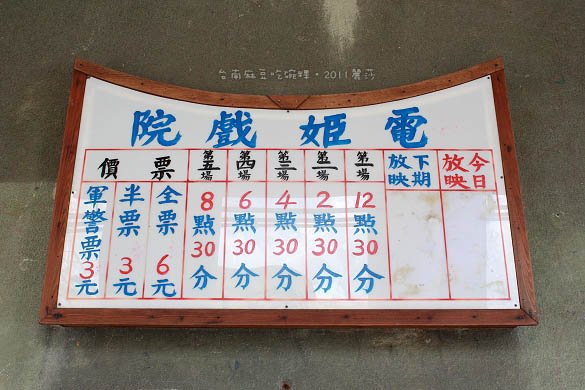 台南麻豆吃碗粿・2011麗莎
電姬戲院
今日放映
下期放映
第一場
12點30分
第二場
2點30分
第三場
4點30分
第四場
6點30分
第五場
8點30分
票價
全票6元
半票3元
軍警票3元